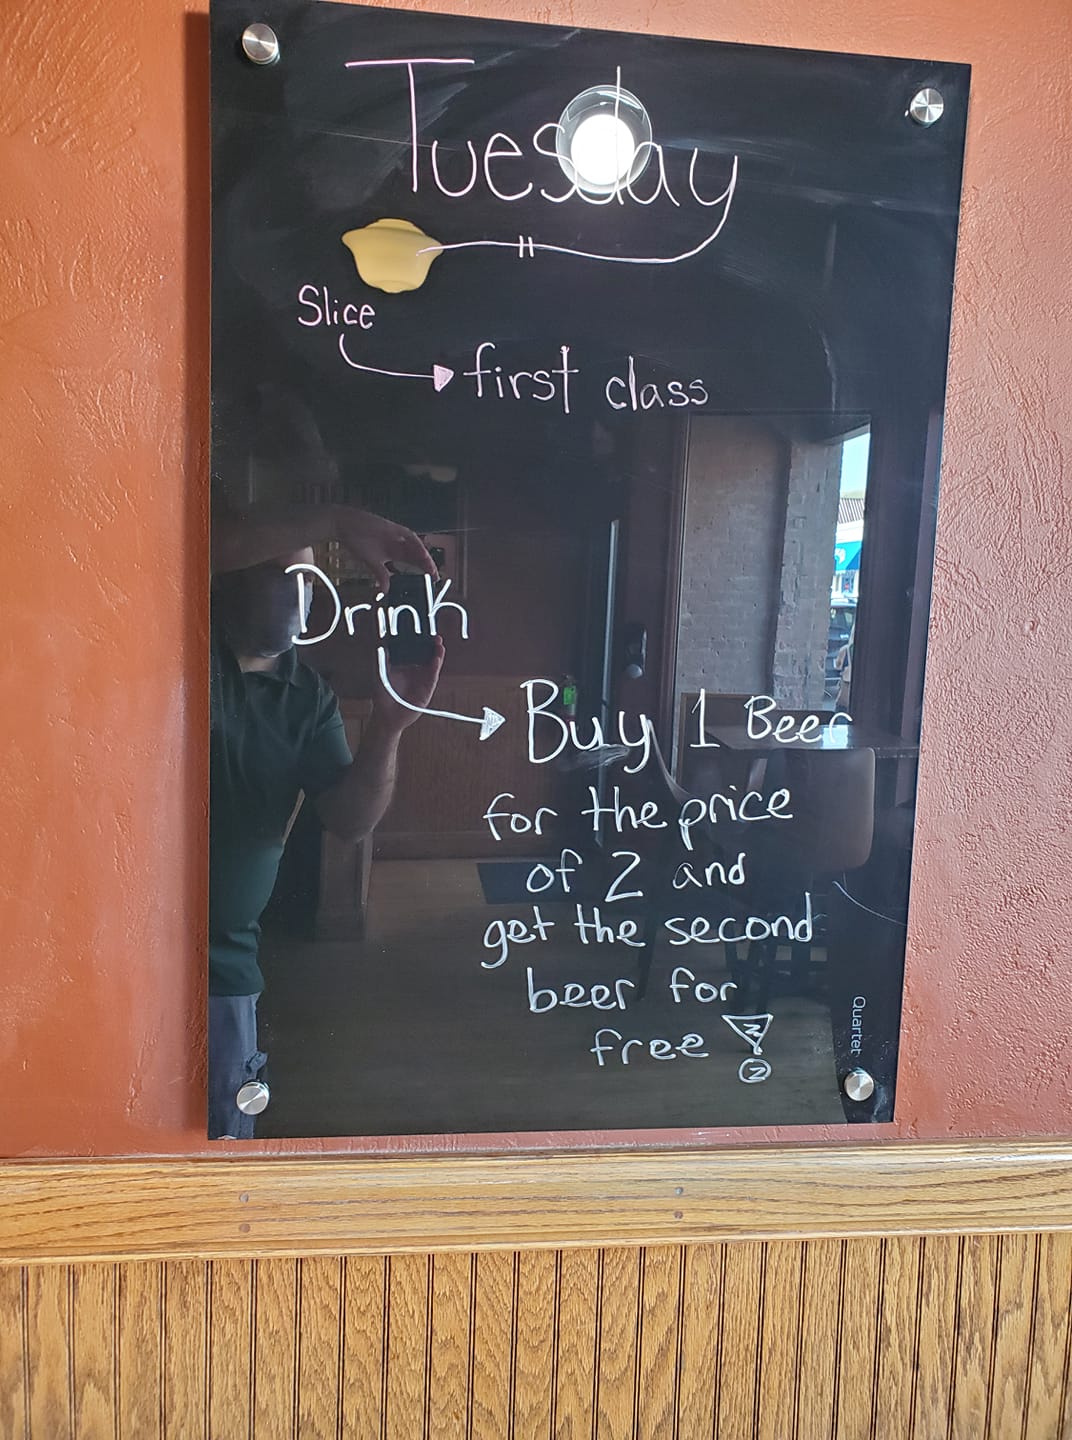 Tuesday
Slice
first class
Drink
Buy 1 Beer
for the price
of 2 and
get the second
beer for
free
Quartet